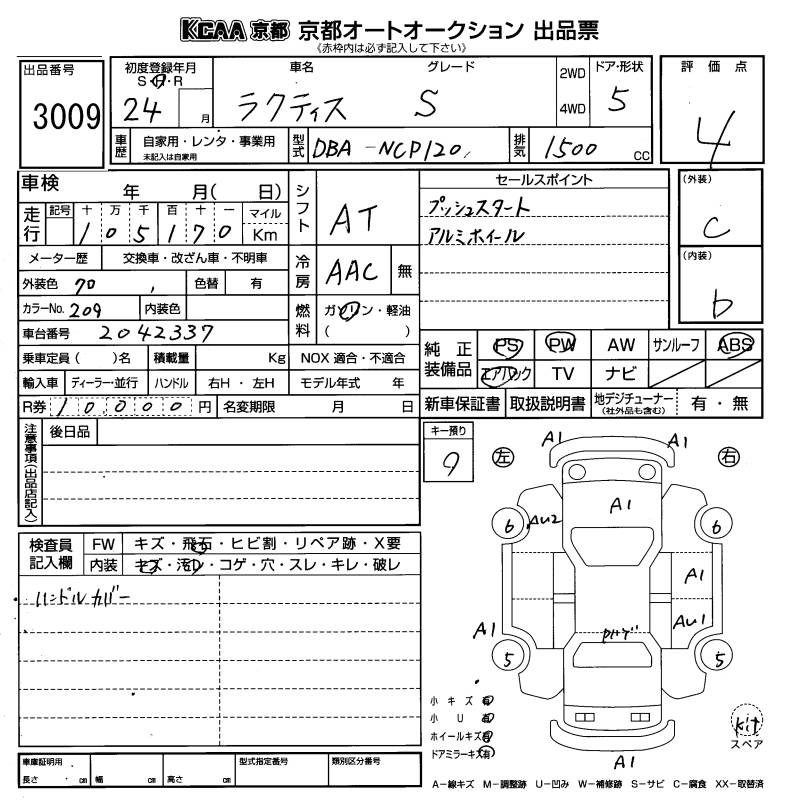 KCAA 京都 京都オートオークション 出品票
《赤枠内は必ず記入して下さい》
出品番号
3009
初度登録年月
S・H・R
24 月
車名
ラクティス
グレード
S
2WD
4WD
ドア・形状
5
評価点
4
車歴
自家用・レンタ・事業用
未記入は自家用
型式
DBA-NCP120
排気
1500 cc
車検 年 月( 日)
走行
記号 十 万 千 百 十 一 マイル
105170 Km
メーター歴 交換車・改ざん車・不明車
外装色 70 色替 有
カラーNo. 209 内装色
車台番号 2042337
乗車定員( )名 積載量 Kg
輸入車 ディーラー・並行 ハンドル 右H・左H
R券 10000 円 名変期限 月 日
シフト
AT
冷房
AAC 無
燃料
ガソリン・軽油
( )
NOX 適合・不適合
モデル年式 年
セールスポイント
プッシュスタート
アルミホイール
(外装)
C
(内装)
b
純正装備品
PS PW AW サンルーフ ABS
エアバック TV ナビ
新車保証書 取扱説明書 地デジチューナー(社外品も含む) 有・無
注意事項(出品店記入)
後日品
キー預り
9
検査員記入欄
FW キズ・飛石・ヒビ割・リペア跡・X要
内装 キズ・汚れ・コゲ・穴・スレ・キレ・破レ
ハンドルカバー
左
右
A1
A1
A1
6
AU2
6
A1
A1
AU1
5
5
A1
小キズ有
小U有
ホイールキズ有
ドアミラーキズ有
kit
スペア
車庫証明用
長さ cm 幅 cm 高さ cm
型式指定番号
類別区分番号
A-線キズ M-調整跡 U-凹み W-補修跡 S-サビ C-腐食 XX-取替済